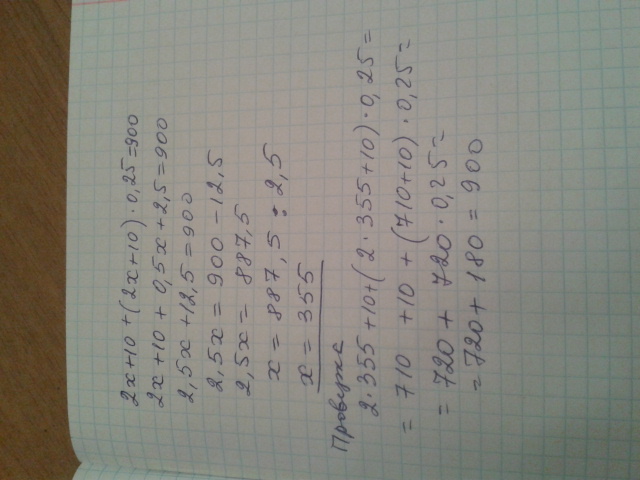 2x+10+(2x+10)·0,25=900
2x+10+0,5x+2,5=900
2,5x+12,5=900
2,5x=900-12,5
2,5x=887,5
x=887,5:2,5
x=355
2·355+10+(2·355+10)·0,25=
=710+10+(710+10)·0,25=
=720+720·0,25=
=720+180=900